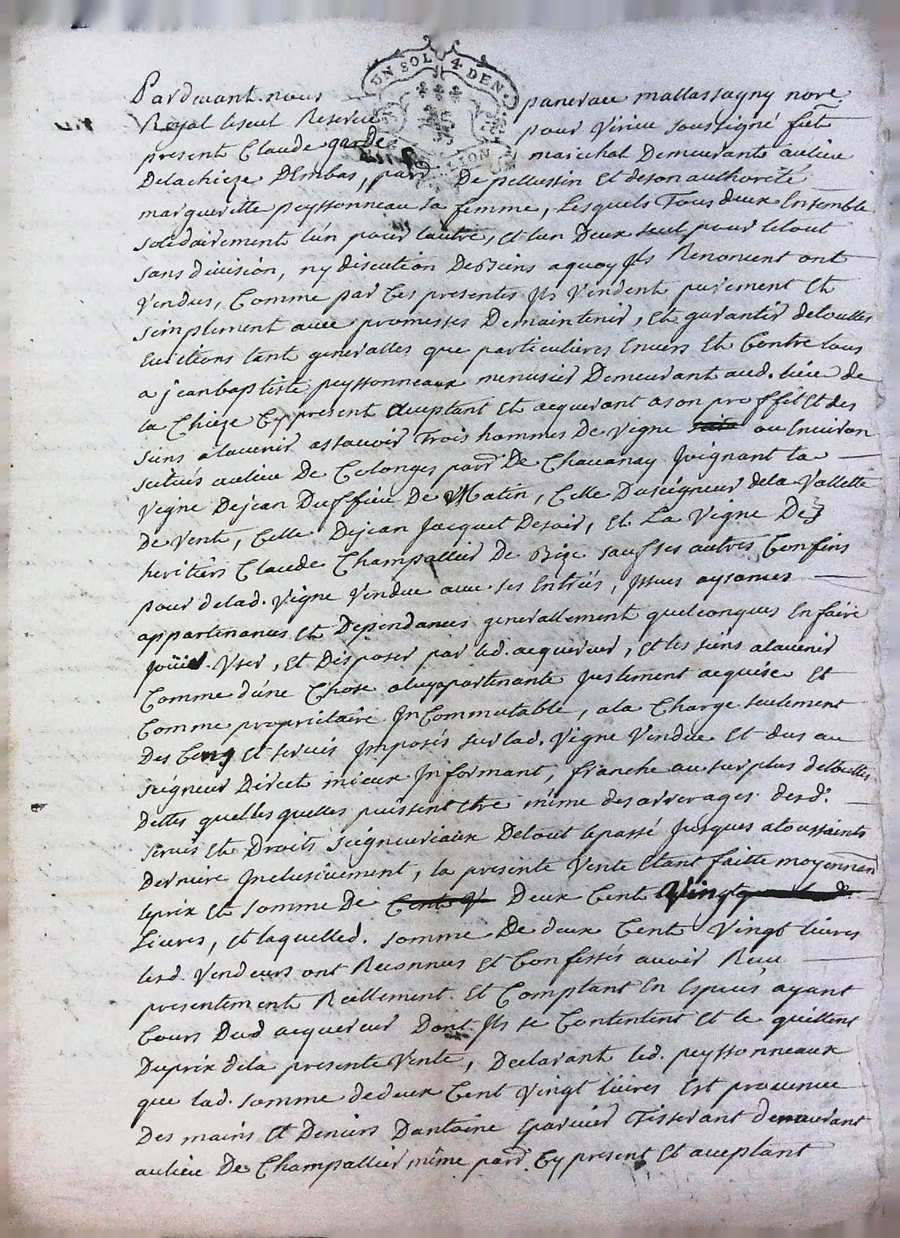 UN SOL 4 DEN.
Pardevant nous pancrace mallassagny nore
Royal Reservé pour Virieu soussigné fut
present Claude garde marechal Demeurant au lieu
Delachieze Dembas, parr De pellussin Et deson authorité
margueritte peyssonneau sa femme, Lesquels Tous deux Ensemble
solidairement L'un pour Lautre, Et lun Deux seul pour letout
sans division, ny discution De Biens aquoy Ils Renoncent ont
vendus, Comme par Ces presentes Ils Vendent purement Et
simplement avec promesses De maintenir, Et garantir detouttes
Evictions tant generalles que particulieres Envers Et Contre tous
a jean baptiste peyssonneaux menusier Demeurant aud. lieu de
la Chieze Cy present aceptant Et acquerant a son proffit Et des
siens alavenir assavoir Trois hommes De Vigne ou Environ
scitués aulieu De Colonges parr De Chavanay Joignant la
Vigne Dejean Duffieu De Matin, Celle Duseigneur dela Vallette
De Vent, Celle Dejean Jacquet Desoir, Et La Vigne Des
heritiers Claude Champallier De Bize sauf ses autres Confins
pour delad. Vigne Vendue avec ses Entrées, Issues aysances
appartenances Et Dependances generallement quelconques En faire
Joüir. Vser, Et Disposer par led. acquereur, Et les siens alavenir
Comme d'une Chose aluy apartenante Justement acquise Et
Comme proprietaire Incommutable, ala Charge seulement
Des Cens Et servis Imposés sur lad. Vigne Vendue Et dus au
seigneur Direct mieux Informant, franche au surplus detouttes
Dettes quelles quelles puissent Etre même des arrerages desd.
servis Et Droits seigneuriaux Detout le passé Jusques atoussaints
Derniere Inclusivement, la presente Vente Etant faitte moyennant
leprix Et somme De Deux Cent Vingt
Livres, Et laquelled. somme De deux Cent Vingt livres
lesd. Vendeurs ont Reconnus Et Confessés avoir Receu
presentement Réellement Et Comptant En Especes ayant
Cours Dud acquereur Dont Ils se Contentent Et le quittent
Duprix dela presente Vente, Declarant led. peyssonneaux
que lad. somme dedeux Cent Vingt livres Est provenue
Des mains Et Deniers Dantoine Tisserant demeurant
aulieu De Champallier même parr. Cy present Et aceptant